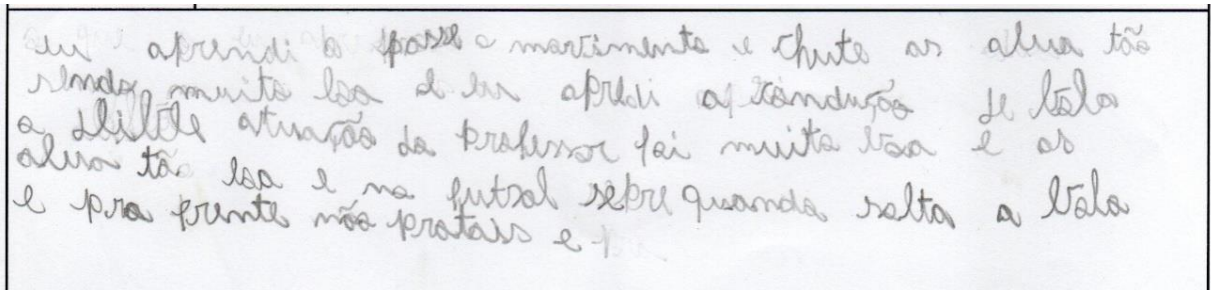 eu aprendi o passe o movimento e chute as alua tão
sendo muito boa e eu apredi a condução de bola
o dlible atuação do professor foi muito boa e as
alua tão boa e no futsal sepre quando solta a bola
e pra frente não pratais e